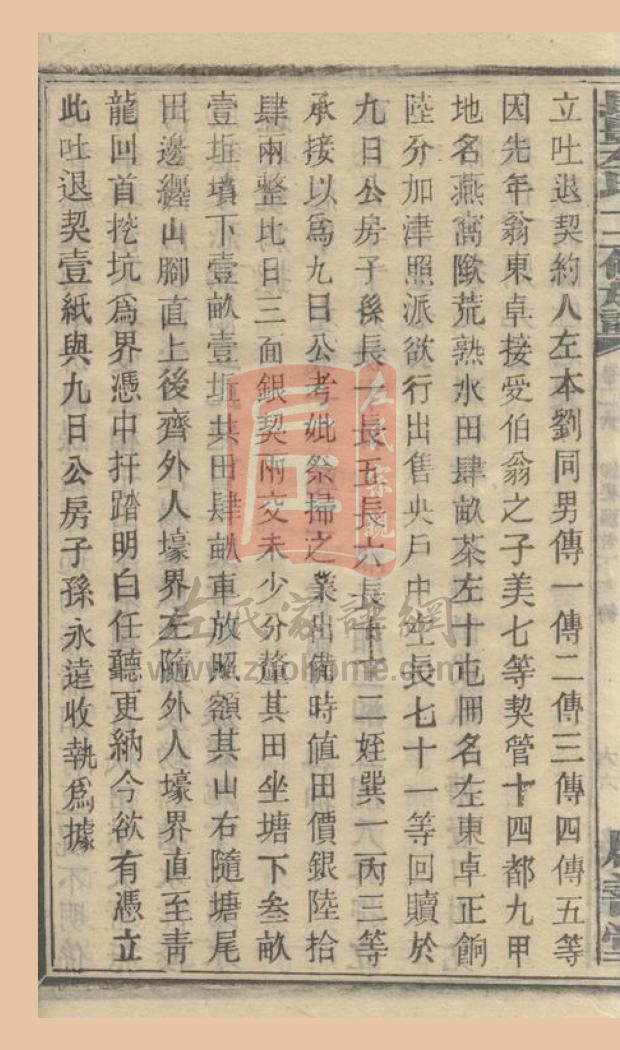 立吐退契約人左本劉同男傳一傳二傳三傳四傳五等
因先年翁東卓接受伯翁之子美七等契管十四都九甲
地名燕窩墩荒熟水田肆畝茶左十屯冊名左東卓正餉
陸分加津照派欲行出售央戶中左長七十一等回贖於
九日公房子孫長一長五長六長七十二姪巽一丙三等
承接以爲九日公考妣祭掃之業出備時値田價銀陸拾
肆兩整比日三面銀契兩交未少分釐其田坐塘下叁畝
壹坵墳下壹畝壹坵共田肆畝車放照額其山右隨塘尾
田邊纏山腳直上後齊外人壕界左隨外人壕界直至靑
龍回首挖坑爲界憑中扦踏明白任聽更納今欲有憑立
此吐退契壹紙與九日公房子孫永遠收執爲據
左氏宗親
左氏家譜網
www.zuohome.com